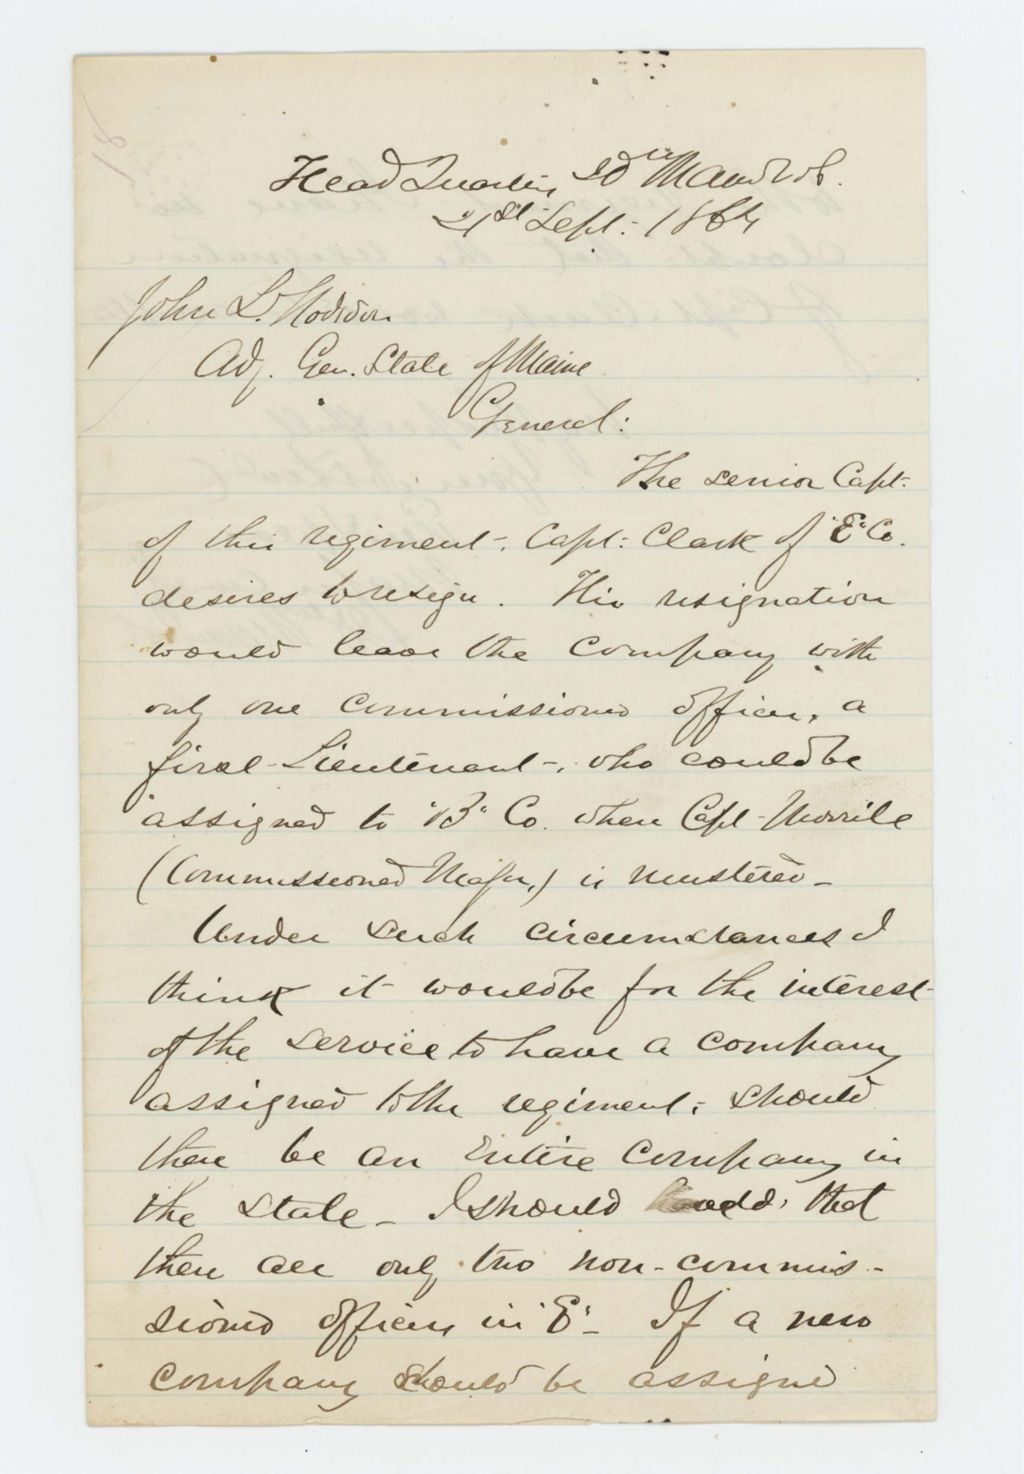 Head Quarters 20th Maine Vols.
21st Sept. 1864
John L. Hodsdon
Adj. Gen. State of Maine
General:
The senior Capt.
of this regiment, Capt: Clark of "E" Co.
desires to resign. His resignation
would leave the Company with
only one commissioned officer, a
first Lieutenant, who could be
assigned to "B" Co. when Capt Morrill
(Commissioned Major,) is mustered -
Under such circumstances I
think it would be for the interest
of the service to have a company
assigned to the regiment, should
there be an entire Company in
the State - I should add, that
there are only two non-commis-
sioned officers in "E" - If a new
company should be assigned